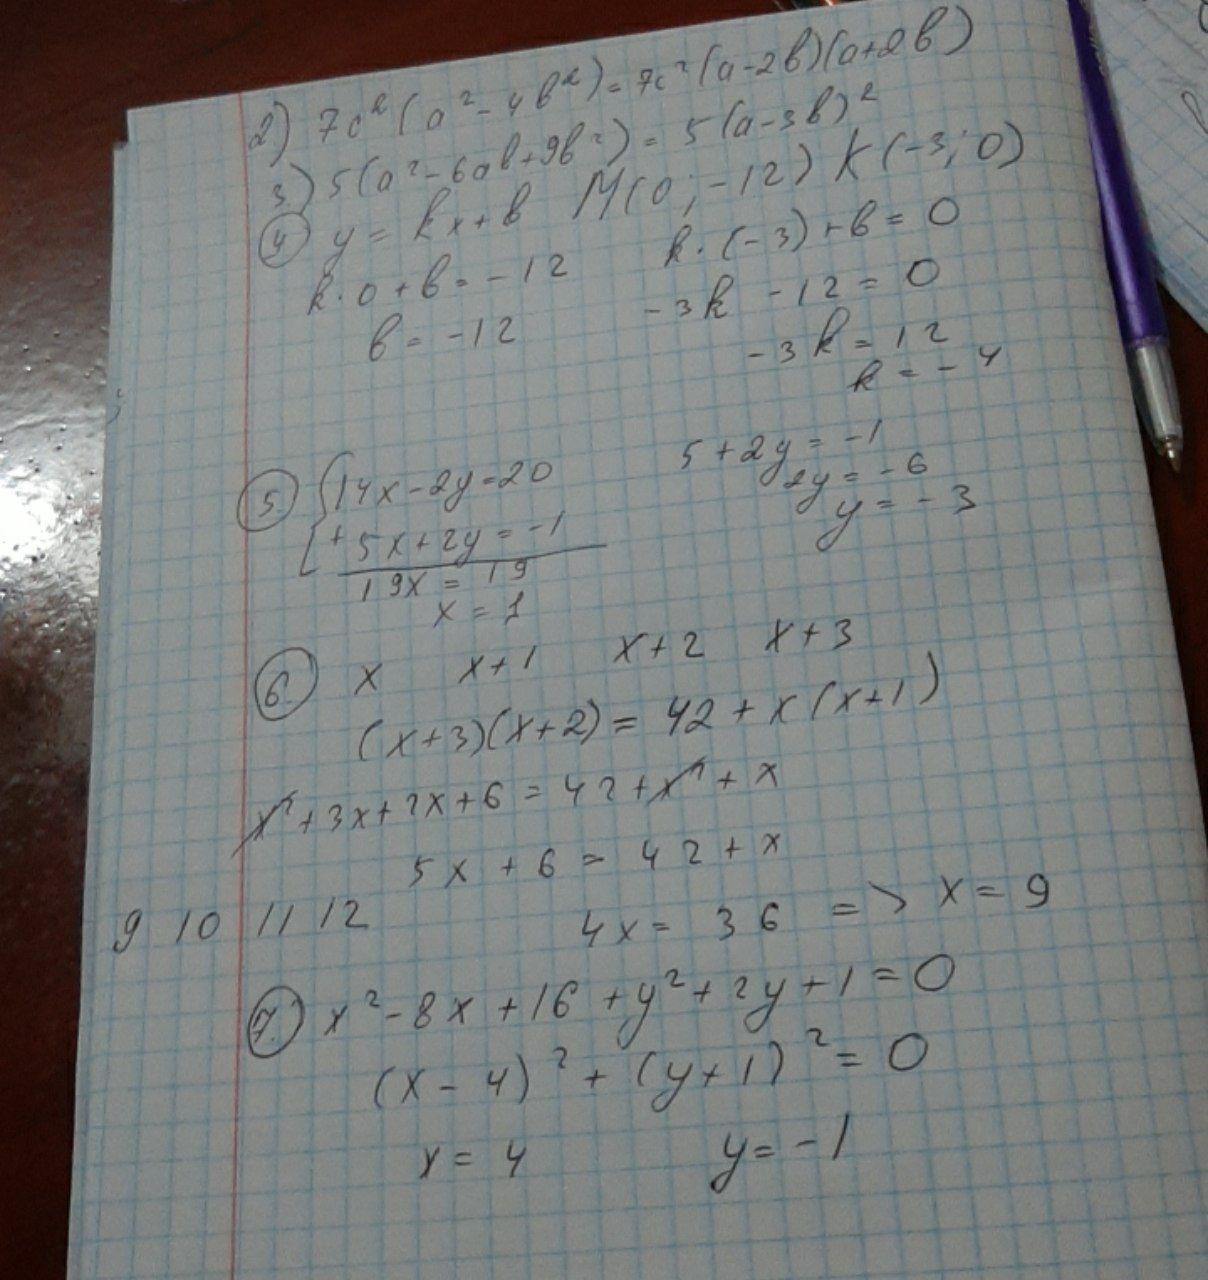 2) 7c²(a²-4b²)=7c²(a-2b)(a+2b)
3) 5(a²-6ab+9b²)=5(a-3b)²
4 y=kx+b M(0;-12) K(-3;0)
k·0+b=-12 k·(-3)+b=0
b=-12 -3k-12=0
-3k=12
k=-4
5. {14x-2y=20 5+2y=-1
+ 5x+2y=-1 2y=-6
19x=19 y=-3
x=1
6. x x+1 x+2 x+3
(x+3)(x+2)=42+x(x+1)
x²+3x+2x+6=42+x²+x
5x+6=42+x
9 10 11 12 4x=36 => x=9
7. x²-8x+16+y²+2y+1=0
(x-4)²+(y+1)²=0
x=4 y=-1